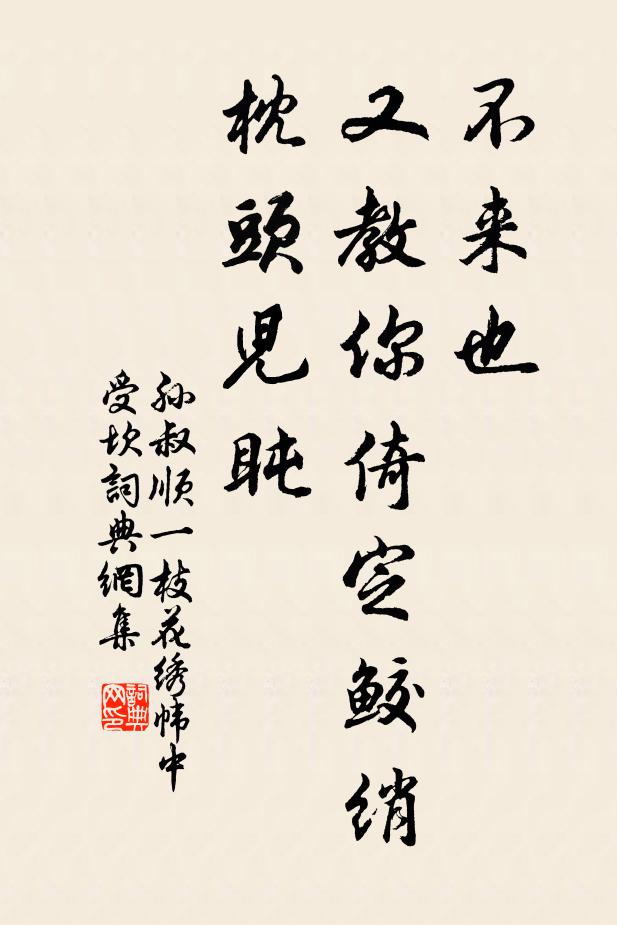 不来也
又教你倚定鲛绡
枕頭兒盹
孙叔顺一枝花绣帏中
受坎詞典網集
詞典
网印